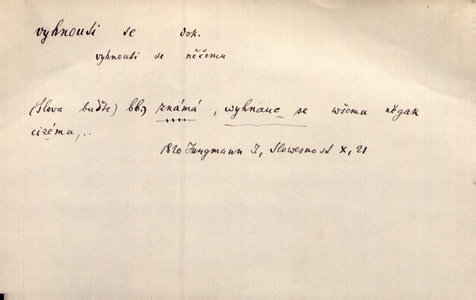 vyhnouti se dok.
vyhnouti se něčemu
(Slova buďte) známá, wyhnauc se wšemu něgak
cizému,..
1820 Jungmann J, Slowesnost X, 21